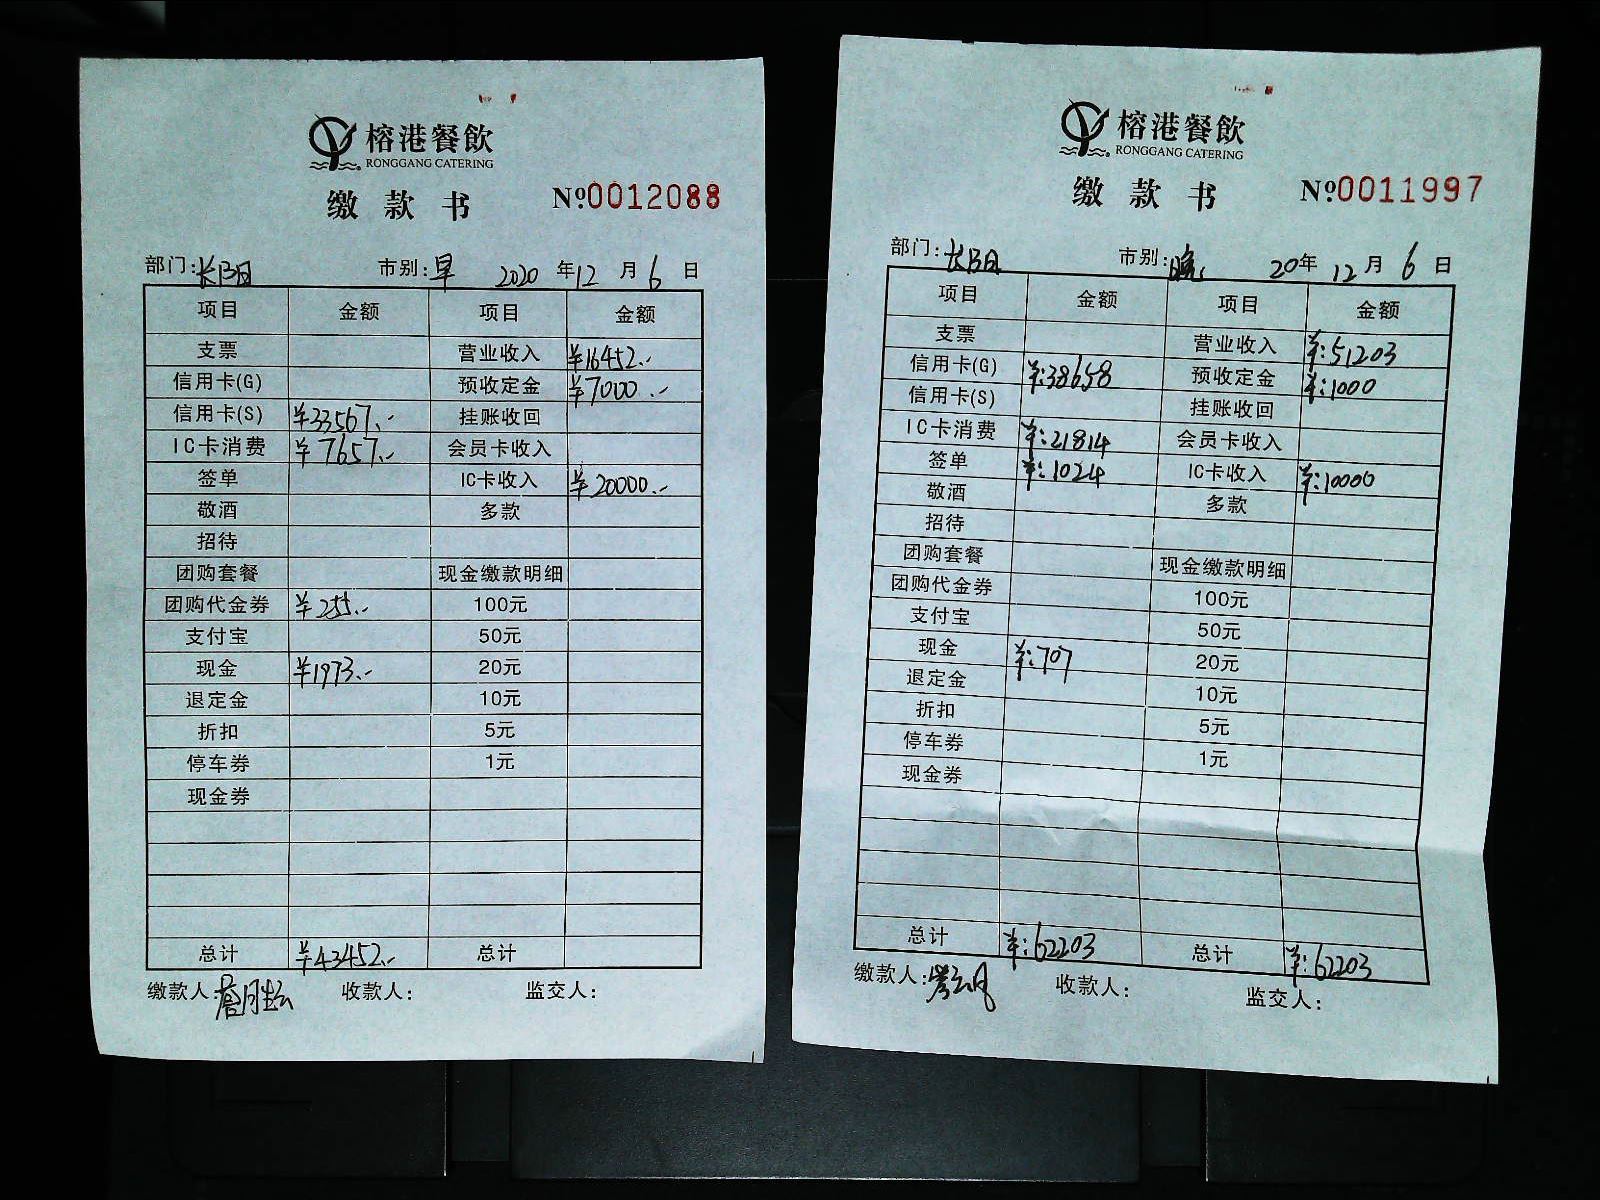 榕港餐飲
RONGGANG CATERING
缴款书 №0012088
部门: 市别:早 2020年12月6日
项目 金额 项目 金额
支票 营业收入 ¥16452.-
信用卡(G) 预收定金 ¥7000.-
信用卡(S) ¥33567.- 挂账收回
IC卡消费 ¥7657.- 会员卡收入
签单 IC卡收入 ¥20000.-
敬酒 多款
招待
团购套餐 现金缴款明细
团购代金券 ¥255.- 100元
支付宝 50元
现金 ¥1973.- 20元
退定金 10元
折扣 5元
停车券 1元
现金券
总计 ¥43452.- 总计
缴款人: 收款人: 监交人:
榕港餐飲
RONGGANG CATERING
缴款书 №0011997
部门: 市别:晚 20年12月6日
项目 金额 项目 金额
支票 营业收入 ¥:51203
信用卡(G) ¥:38658 预收定金 ¥:1000
信用卡(S) 挂账收回
IC卡消费 ¥:21814 会员卡收入
签单 ¥:1024 IC卡收入 ¥:10000
敬酒 多款
招待
团购套餐 现金缴款明细
团购代金券 100元
支付宝 50元
现金 ¥:707 20元
退定金 10元
折扣 5元
停车券 1元
现金券
总计 ¥:62203 总计 ¥:62203
缴款人: 收款人: 监交人: